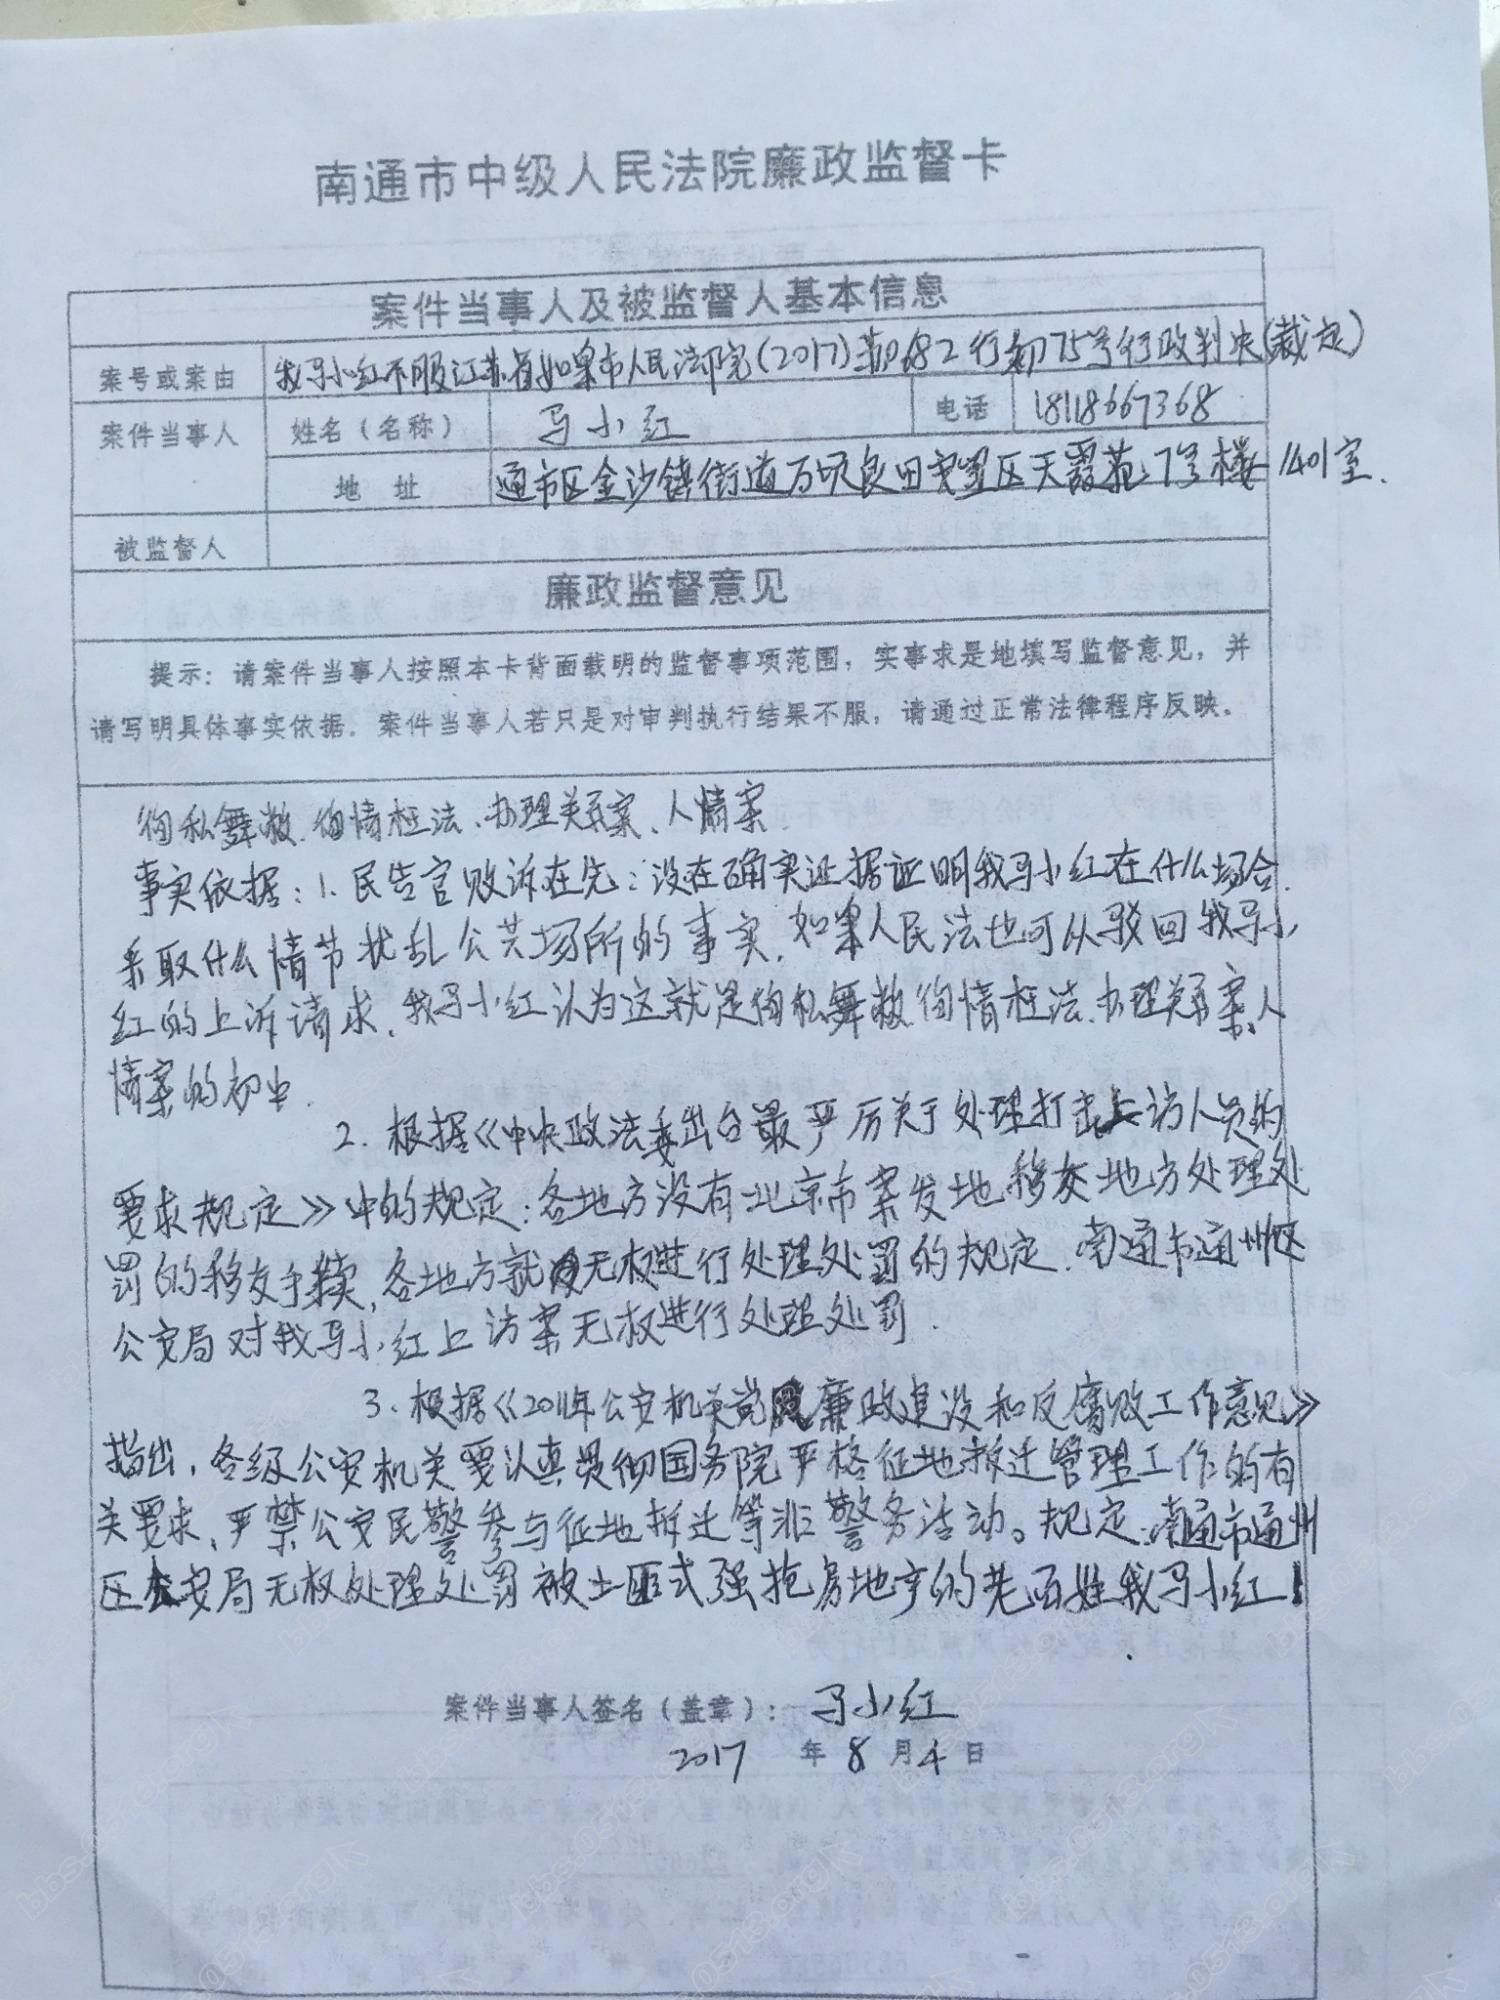 南通市中级人民法院廉政监督卡
案件当事人及被监督人基本信息
案号或案由 我马小红不服江苏省如皋市人民法院(2017)苏0682行初75号行政判决(裁定)
案件当事人 姓名（名称） 马小红 电话 18118667368
地 址 通市区金沙镇街道万顷良田安置区天霞苑7号楼1401室.
被监督人
廉政监督意见
提示：请案件当事人按照本卡背面载明的监督事项范围，实事求是地填写监督意见，并
请写明具体事实依据．案件当事人若只是对审判执行结果不服，请通过正常法律程序反映．
徇私舞弊.徇情枉法、办理关系案、人情案
事实依据：1.民告官败诉在先：没在确实证据证明我马小红在什么场合.
采取什么情节扰乱公共场所的事实.如皋人民法也可从驳回我马小
红的上诉请求.我马小红认为这就是徇私舞弊.徇情枉法.办理关系案.人
情案的初步.
2.根据《中央政法委出台最严厉关于处理打击上访人员的
要求规定》中的规定：各地方没有北京市案发地移交地方处理处
罚的移交手续,各地方就无权进行处理处罚的规定.南通市通州区
公安局对我马小红上访案无权进行处理处罚.
3.根据《2011年公安机关党风廉政建设和反腐败工作意见》
指出,各级公安机关要认真贯彻国务院严格征地拆迁管理工作的有
关要求,严禁公安民警参与征地拆迁等非警务活动。规定:南通市通州
区公安局无权处理处罚被土匪式强抢房地产的老百姓我马小红!
案件当事人签名（盖章）： 马小红
2017 年 8 月 4 日
bbs.0513.org